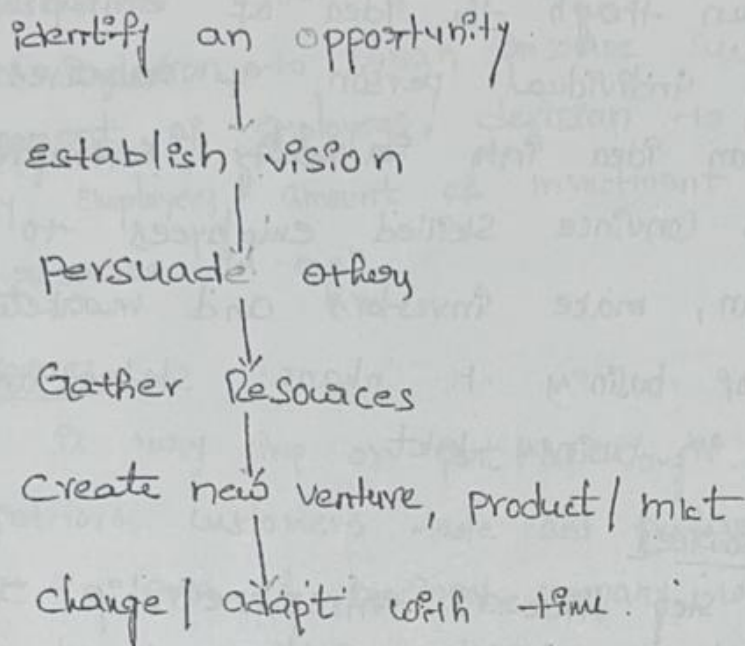 identify an opportunity.
Establish vision
persuade others
Gather Resources
Create new venture, product / mkt
change / adapt with time.